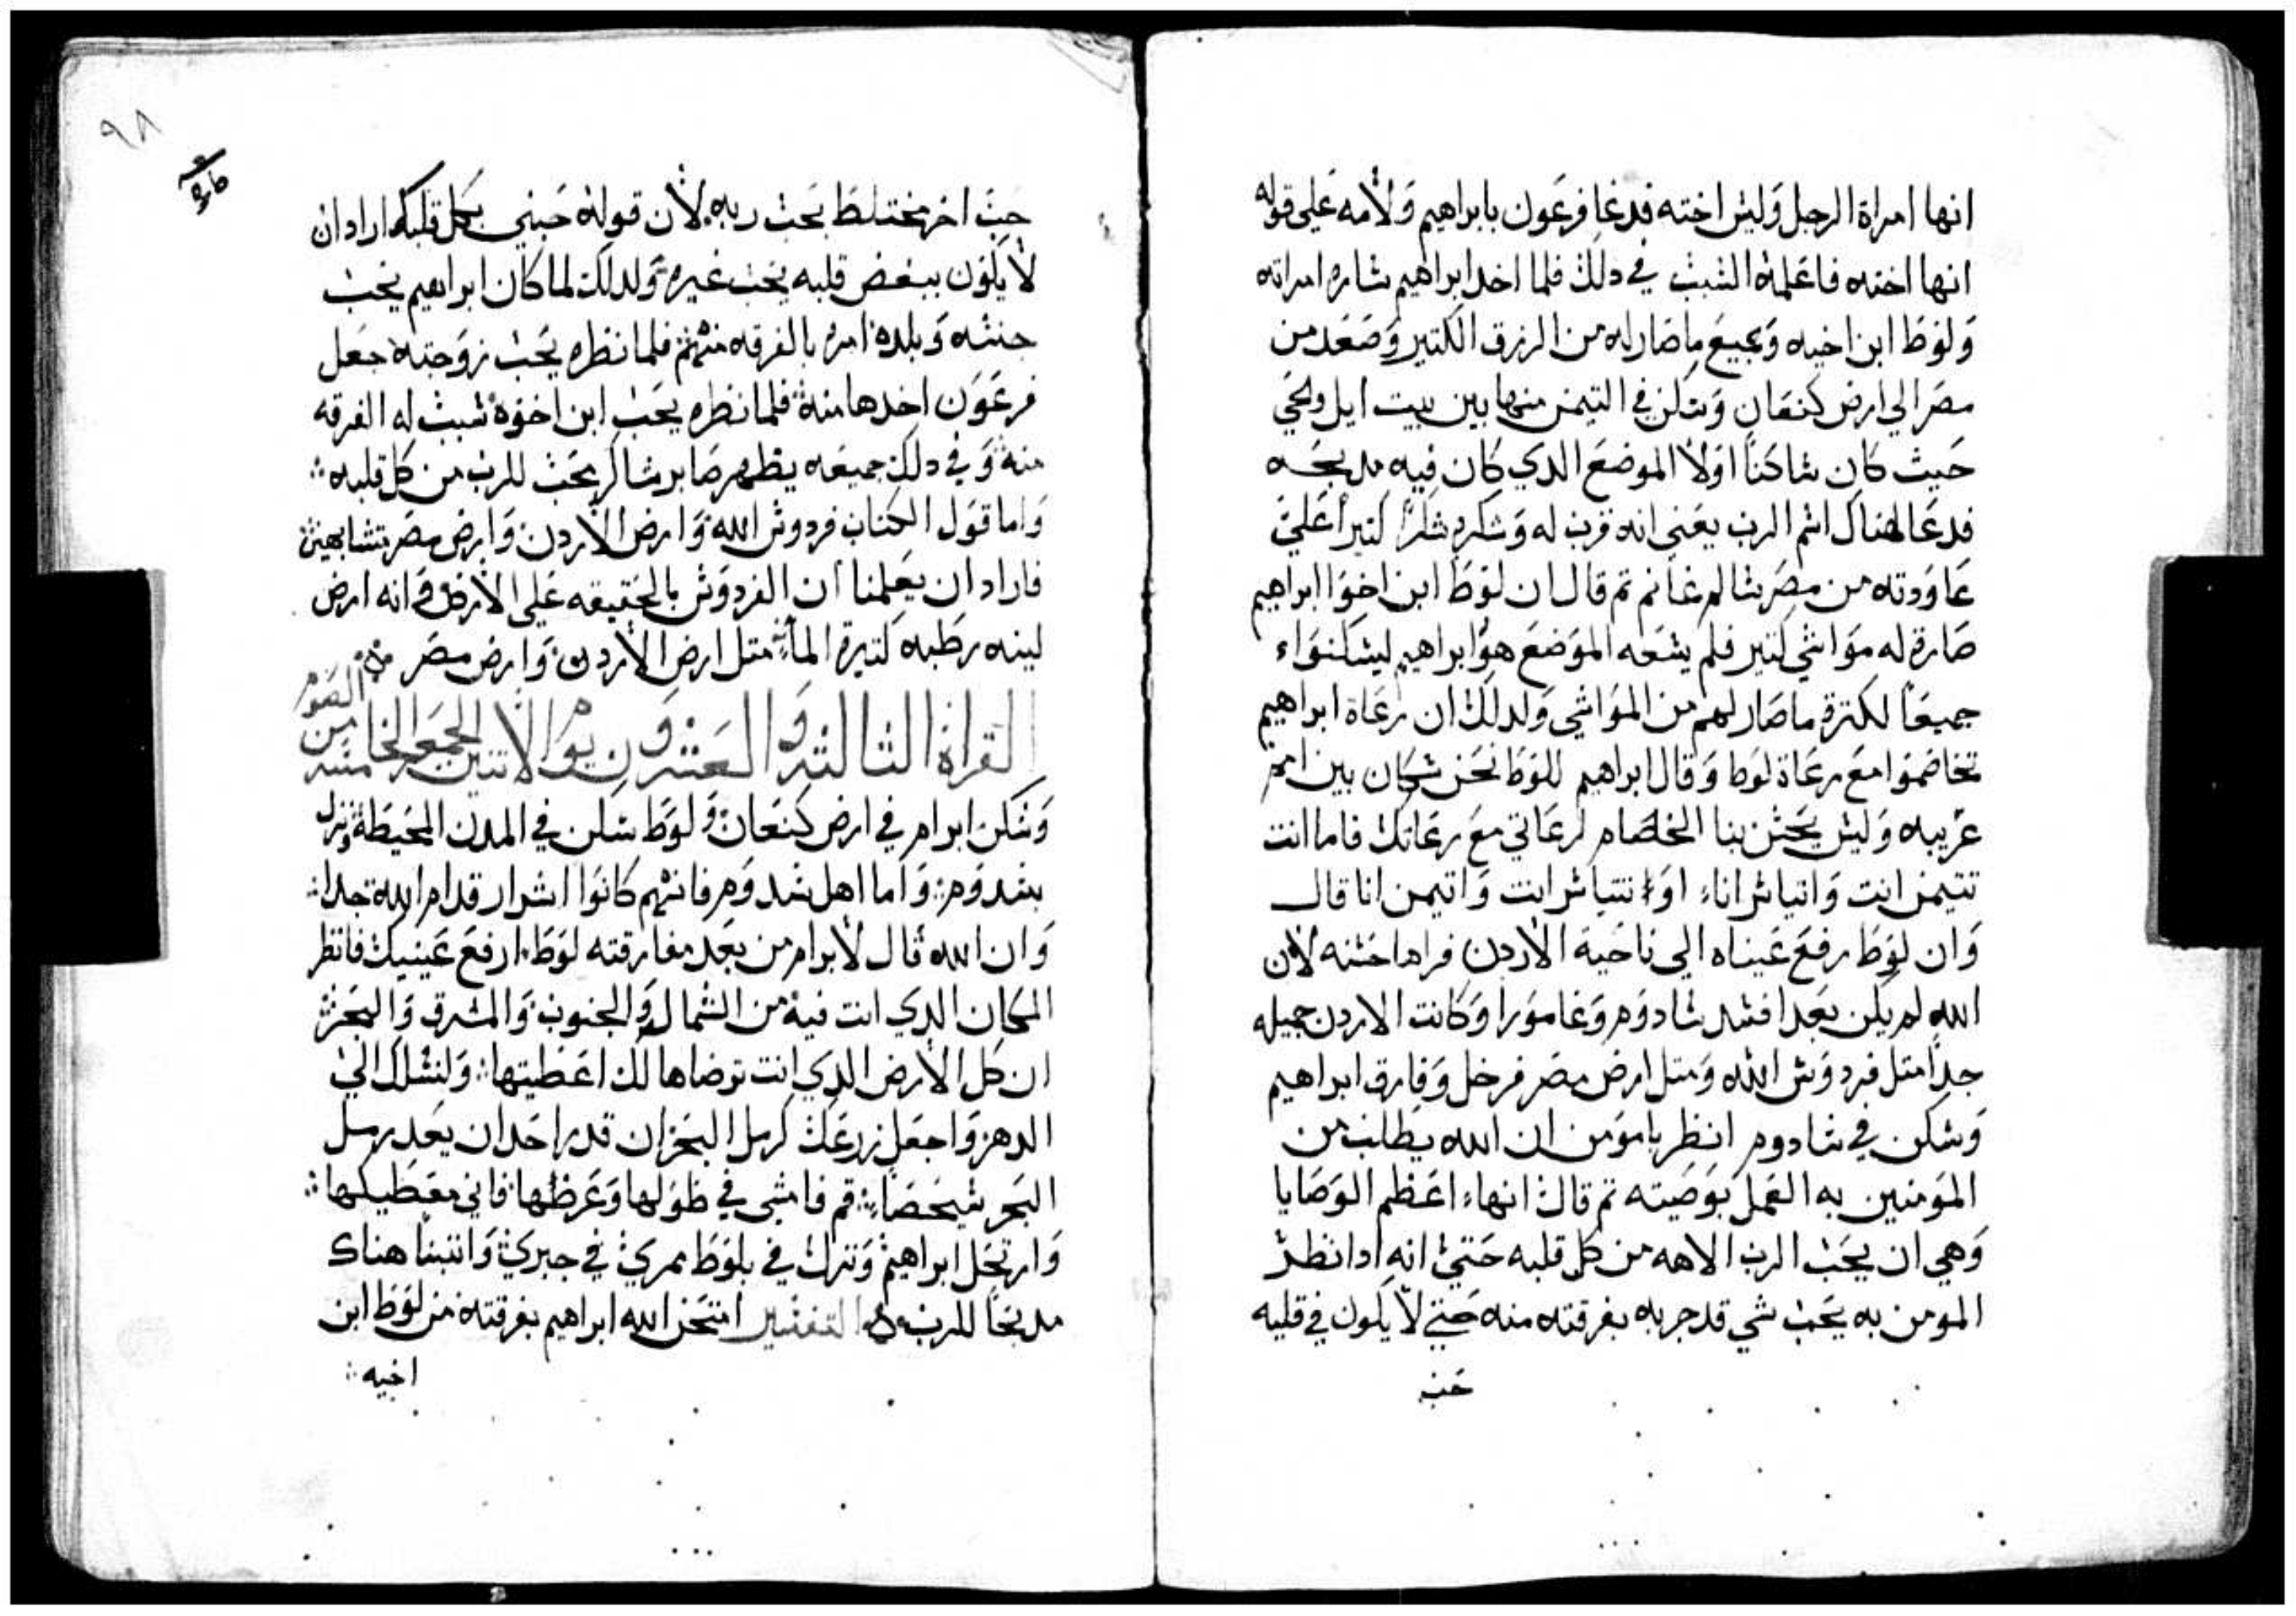 انها امراة الرجل وليس اخته فدعا فرعون بابراهيم ولامه على قوله
انها اخته فاعلمة السبب في دلك فلما اخد ابراهيم ساره امراته
ولوط ابن اخيه وجميع ما صار له من الرزق الكتير وصعد من
مصر الي ارض كنعان وسكن في التيمن منها بين بيت ايل وَلحَي
حيث كان ساكنا اولا الموضع الدي كان فيه مدبحه
فدعا هناك اسم الرب يعني انه قرب له وشكره شكرا كتيرا علي
عاودته من مصر سالم غانم تم قال ان لوط ابن اخوا ابراهيم
صارة له مواشي كتير فلم يسعه الموضع هو وابراهيم ليسكنواء
جميعا لكترة ما صار لهم من المواشي ولدلك ان رعاة ابراهيم
تخاضموا مع رعاة لوط وقال ابراهيم للوط نحن سكان بين امم
غريبه وليس يحسن بنا الخصام لرعاتي مع رعاتك فاما انت
تتيمن انت واتياسر اناء او تتياسر انت واتيمن انا قال
وان لوط رفع عيناه الي ناحية الاردن فراها حسنه لان
الله لم يكن بعد افسد سادوم وغامورا وكانت الاردن جميله
جدا متل فردوس الله ومتل ارض مصر فرحل وفارق ابراهيم
وسكن في سادوم انظر يا مومن ان الله يطلب من
المومنين به العمل بوصيته تم قال انهاء اعظم الوصايا
وهي ان يحب الرب الاهه من كل قلبه حتي انه ادا نظر
المومن به يحب شي قد جربه بفرقته منه حتي لا يكون في قلبه
حب
٩٨
حب اخر مختلط بحب ربه لان قوله حبني بكل قلبك اراد ان
لا يكون ببعض قلبه يحب غيره ولدلك لما كان ابراهيم يحب
جنسه وبلده امره بالفرقه منهم فلما نظره يحب زوجته جعل
فرعون اخدها منه فلما نظره يحب ابن اخوه سبب له الفرقه
منه وفي دلك جميعه يظهر صابر شاكر محب للرب من كل قلبه
واما قول الكتاب فردوس الله وارض الاردن وارض مصر تتشابهين
فاراد ان يعلمنا ان الفردوس بالحقيقه علي الارض وانه ارض
لينه رطبه كتيرة الماء متل ارض الاردن وارض مصر
القراة الثالثه والعشرون يوم الاتنين الجمعه الخامسه من الصوم
وسكن ابرام في ارض كنعان ولوط سكن في المدن المحيطة ونزل
بسدوم واما اهل سدوم فانهم كانوا اشرار قدام الله جدا
وان الله قال لابرام من بعد مفارقته لوط ارفع عينيك فانظر
المكان الدي انت فيه من الشمال والجنوب والمشرق والبحر
ان كل الارض الدي انت تراضاها لك اعطيتها ولنسلك الي
الدهر واجعل زرعك كرمل البحر ان قدر احد ان يعد رمل
البحر شيخصاء قم فامشي في طولها وعرظها فاني معطيكها
وارتحل ابراهيم ونزل في بلوط ممري في جبري وابتنا هناك
مدبحا للرب التفسير امتحن الله ابراهيم بفرقته من لوط ابن
اخيه